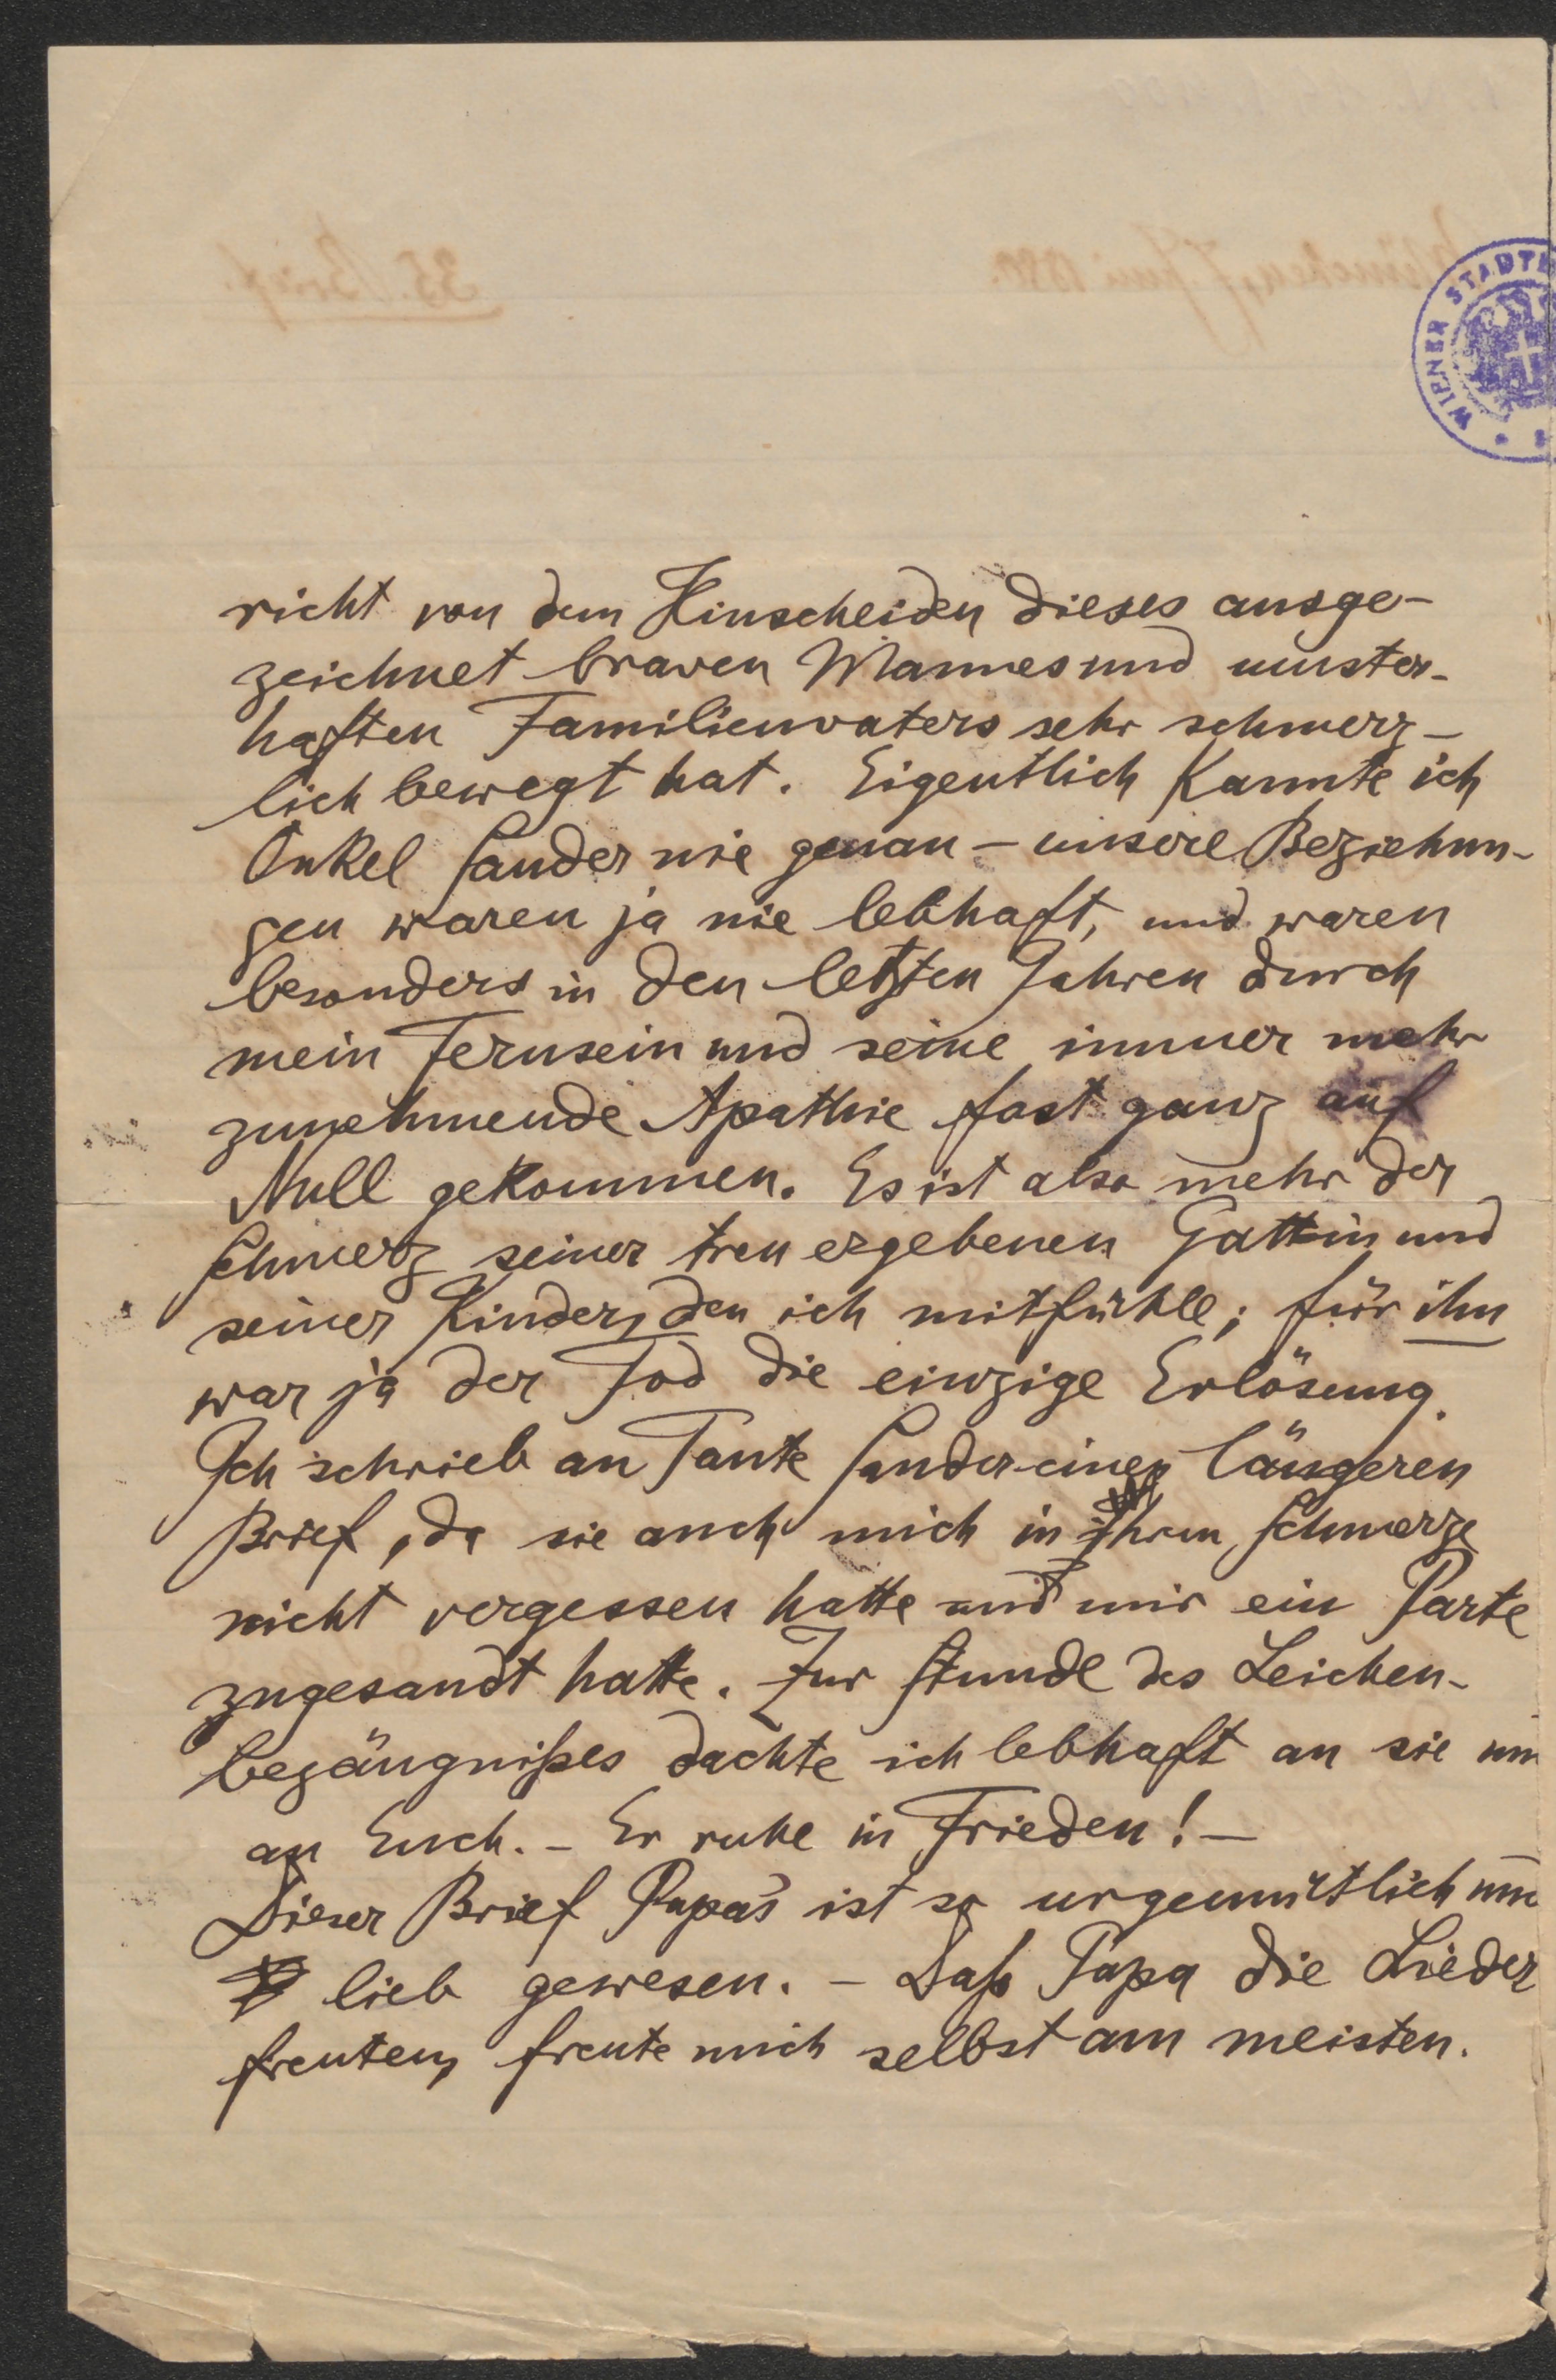 WIENER STADT
richt von dem Hinscheiden dieses ausge-
zeichnet braven Mannes und muster-
haften Familienvaters sehr schmerz-
lich bewegt hat. Eigentlich kannte ich
Onkel Sander nie genau – unsere Beziehun-
gen waren ja nie lebhaft, und waren
besonders in den letzten Jahren durch
mein Fernsein und seine immer mehr
zunehmende Apathie fast ganz auf
Null gekommen. Es ist also mehr der
Schmerz seiner treu ergebenen Gattin und
seiner Kinder, den ich mitfühle; für ihn
war ja der Tod die einzige Erlösung.
Ich schrieb an Tante Sander einen längeren
Brief, da sie auch mich in ihrem Schmerze
nicht vergessen hatte und mir ein Parte
zugesandt hatte. Zur Stunde des Leichen-
begängnißes dachte ich lebhaft an sie un
an Euch. – Er ruhe in Frieden! –
Dieser Brief Papa's ist so urgemütlich un
lieb gewesen. – Daß Papa die Lieder
freuten, freute mich selbst am meisten.